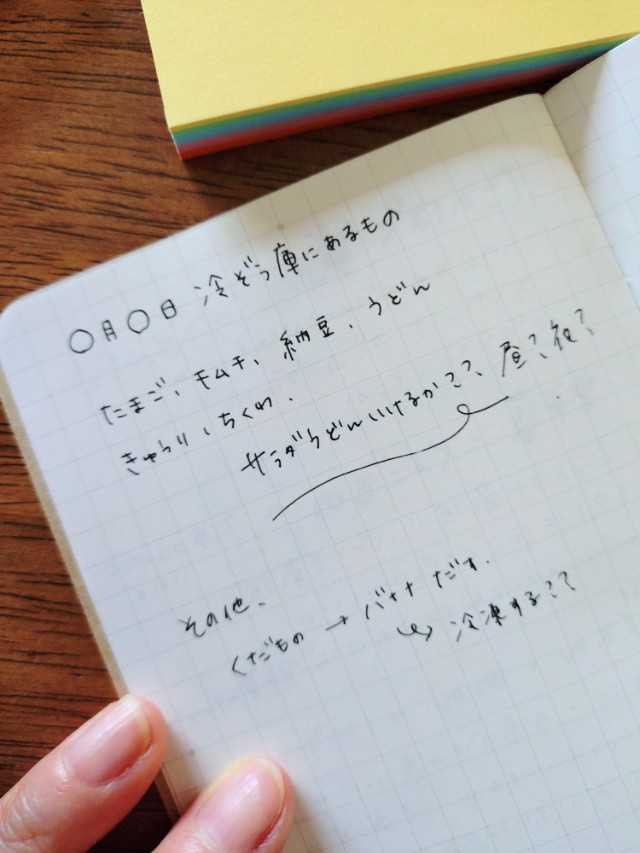 〇月〇日 冷ぞう庫にあるもの
たまご、キムチ、納豆、うどん
きゅうり、ちくわ、
サラダうどんいけるか??、昼?夜?
その他、
くだもの → バナナ だけ、
↳ 冷凍する??